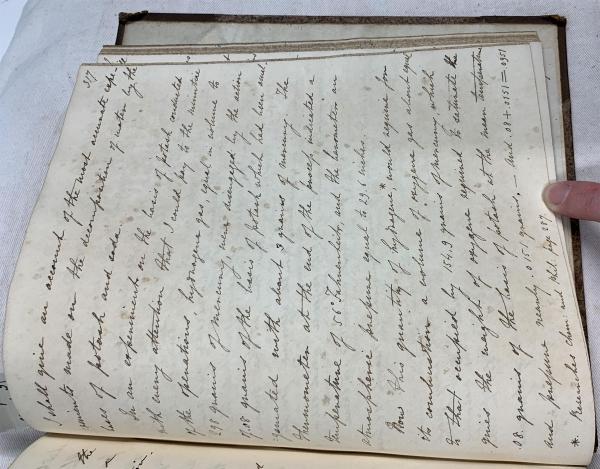 37
I shall give an account of the most accurate expe-
riments made on the decomposition of water by the
bases of potash and soda.
In an experiment on the basis of potash conducted
with every attention that I could pay to the minutiae
of the operations, hydrogene gas, equal in volume to
298 grains of mercury, were disengaged by the action
of .08 grains of the basis of potash which had been amal-
gamated with about 3 grains of mercury. The
thermometer at the end of the process indicated a
temperature of 56° Fahrenheit, and the barometer an
atmospheric pressure equal to 29.6 inches.
Now this quantity of hydrogene* would require for
its combustion a volume of oxygene gas about equal
to that occupied by 154.9 grains of mercury, which
gives the weight of oxygene required to saturate the
.08 grains of the basis of potash at the mean temperature
and pressure nearly .0151 grains. And .08 + .0151 = .0951
* Researches Chem. and Phil. page 287.
the